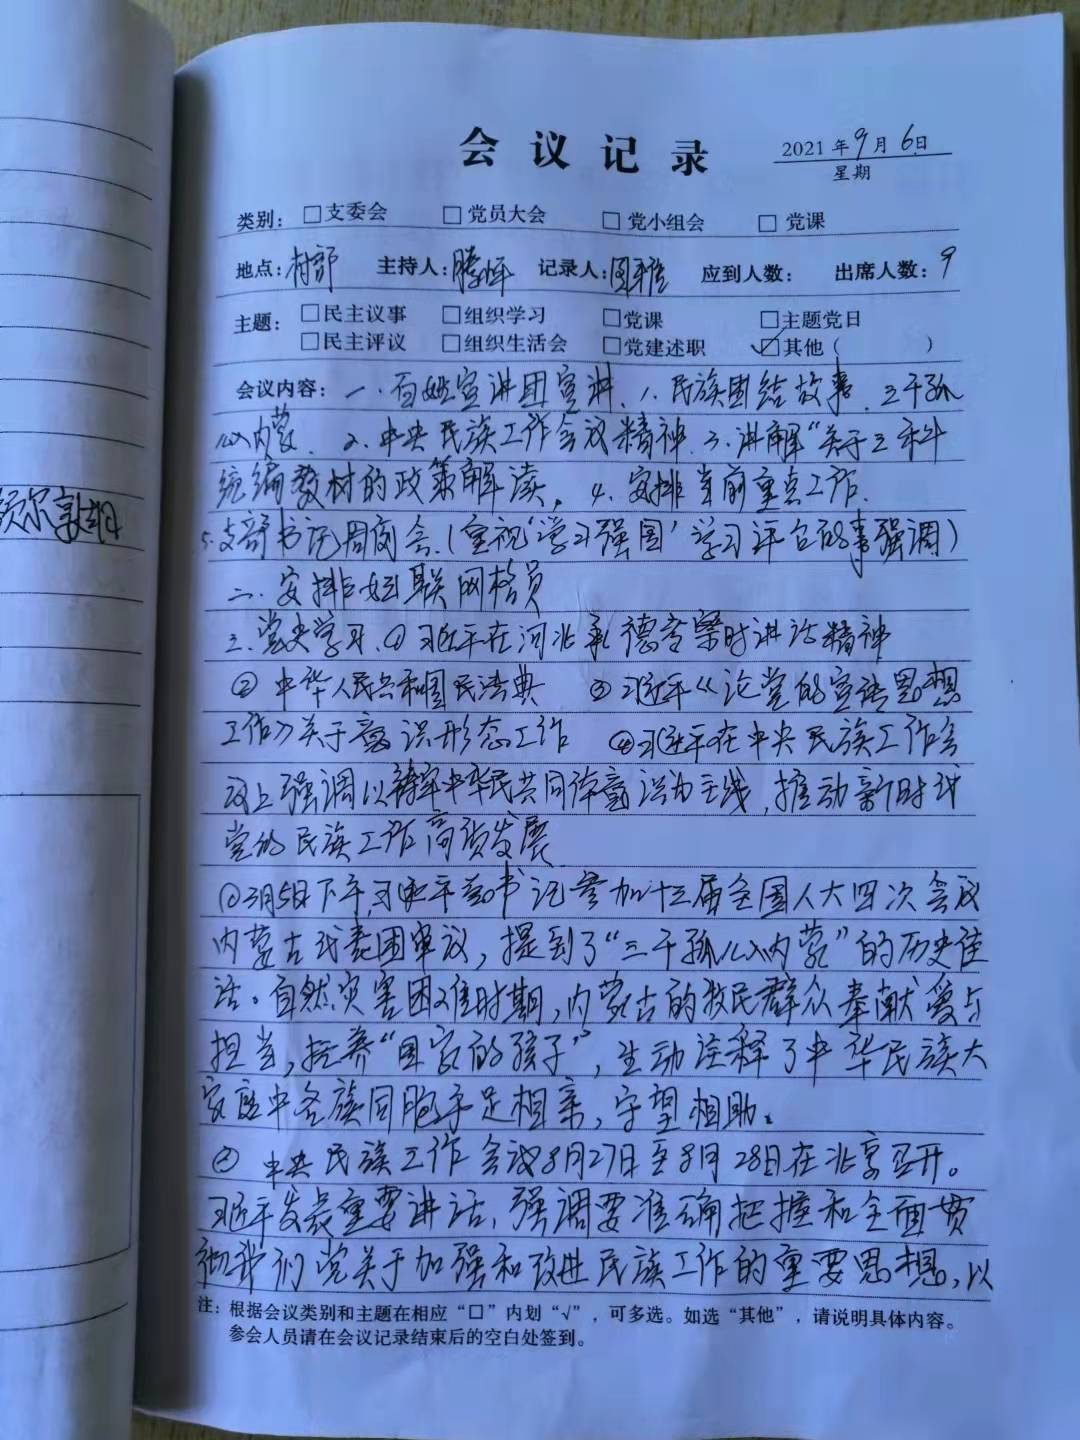 会议记录
2021年9月6日
星期
类别：□支委会 □党员大会 □党小组会 □党课
地点：村部 主持人：腾辉 记录人：图雅 应到人数： 出席人数：9
主题：□民主议事 □组织学习 □党课 □主题党日
□民主评议 □组织生活会 □党建述职 ☑其他（ ）
会议内容：一．百姓宣讲团宣讲．1．民族团结故事．三千孤
儿入内蒙．2．中央民族工作会议精神．3．讲解“关于三科
统编教材的政策解读。4．安排当前重点工作．
5．支部书记周例会．（重视‘学习强国’学习平台的事强调）
二．安排妇联网格员
三．党史学习．①习近平在河北承德考察时讲话精神
②中华人民共和国民法典 ③习近平《论党的宣传思想
工作》关于意识形态工作 ④习近平在中央民族工作会
议上强调以铸牢中华民共同体意识为主线，推动新时代
党的民族工作高质发展
①3月5日下午，习近平总书记参加十三届全国人大四次会议
内蒙古代表团审议，提到了“三千孤儿入内蒙”的历史佳
话。自然灾害困难时期，内蒙古的牧民群众奉献爱与
担当，抚养“国家的孩子”，生动诠释了中华民族大
家庭中各族同胞手足相亲，守望相助。
② 中央民族工作会议8月27日至8月28日在北京召开。
习近平发表重要讲话，强调要准确把握和全面贯
彻我们党关于加强和改进民族工作的重要思想，以
注：根据会议类别和主题在相应“□”内划“√”，可多选。如选“其他”，请说明具体内容。
参会人员请在会议记录结束后的空白处签到。